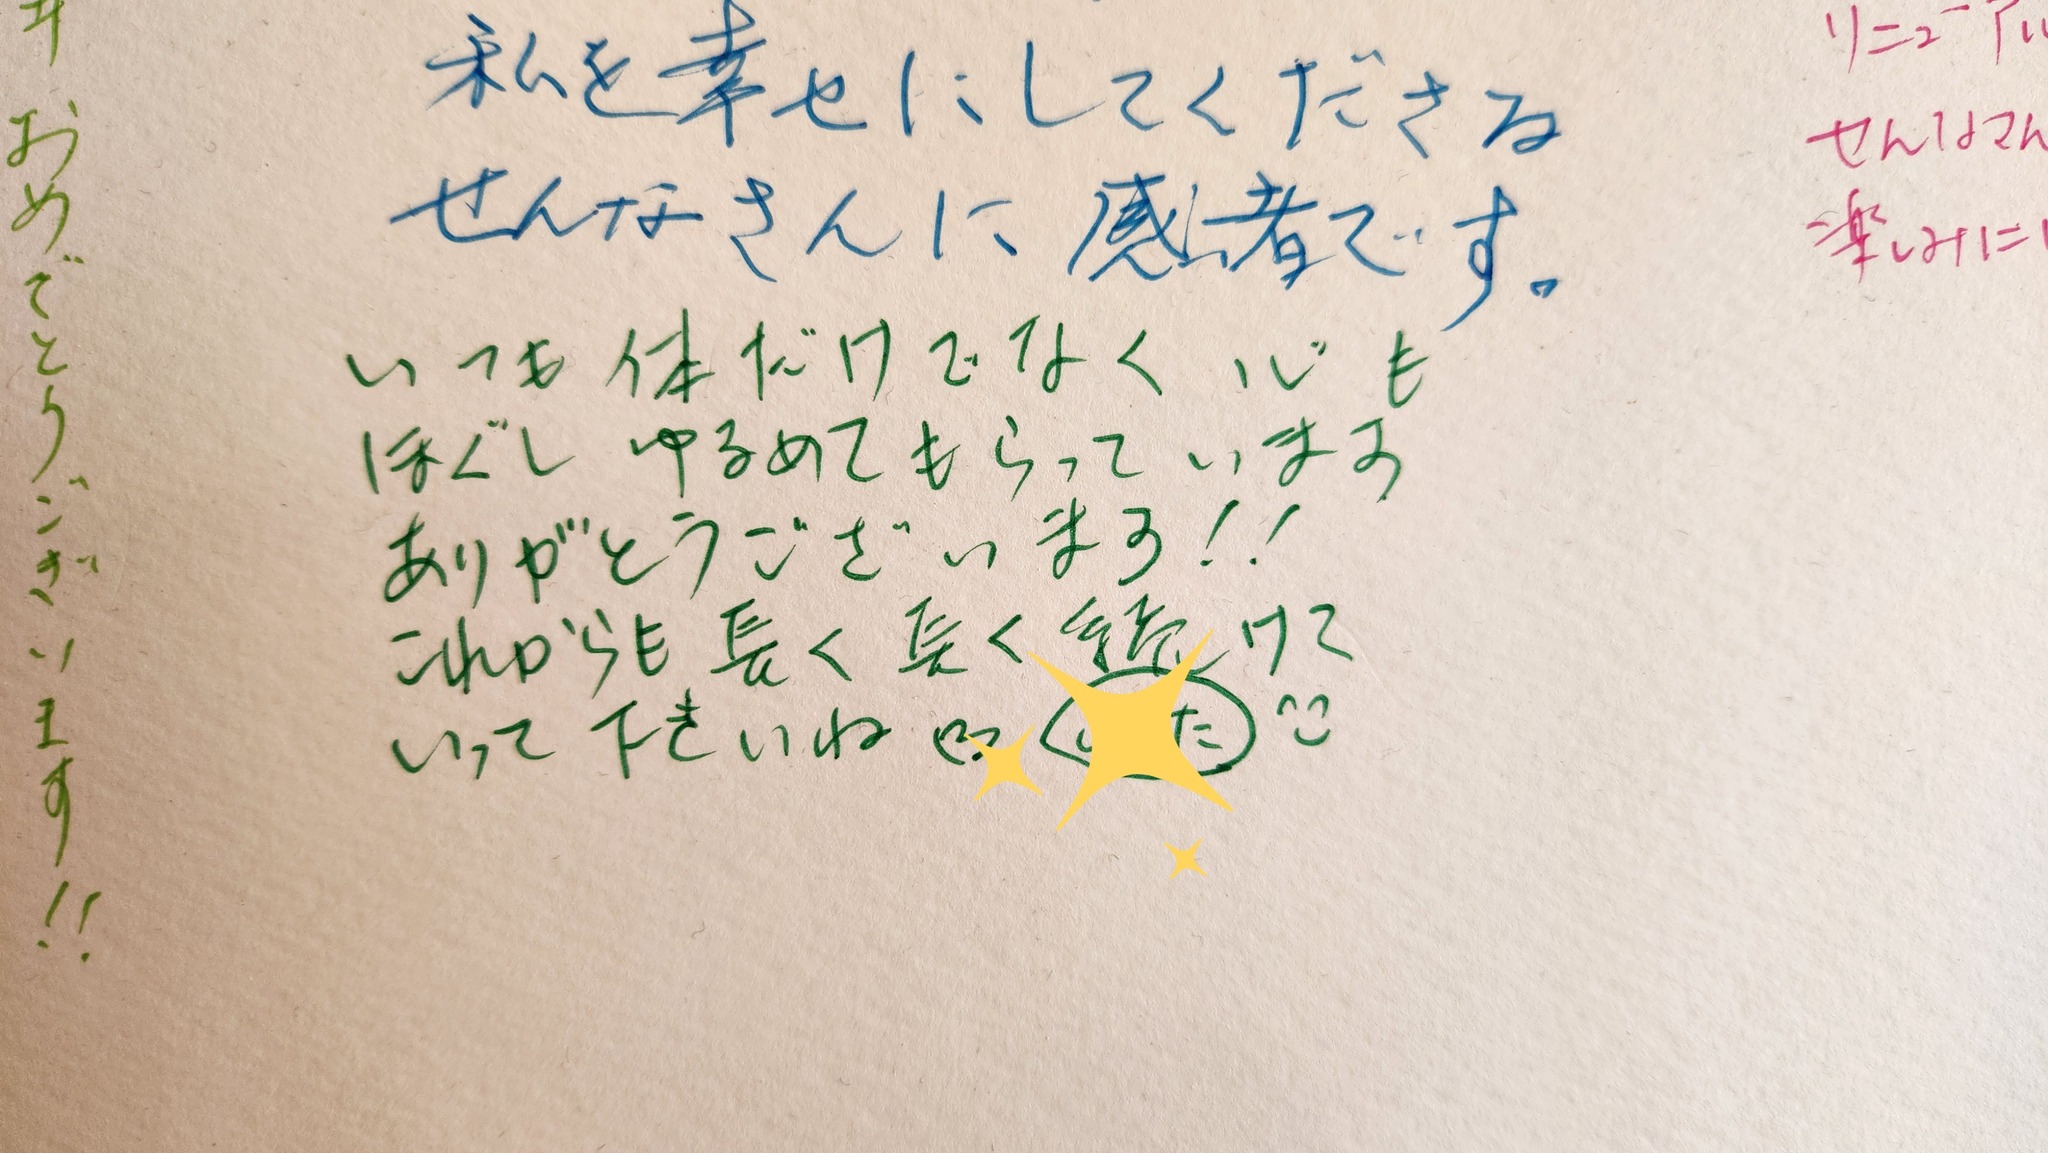 おめでとうございます!!
私を幸せにしてくださる
せんなさんに感者です。
いつも体だけでなく心も
ほぐしゆるめてもらっています
ありがとうございます!!
これからも長く長く続けて
いって下さいね
た
リニューアル
せんなさん
楽しみに